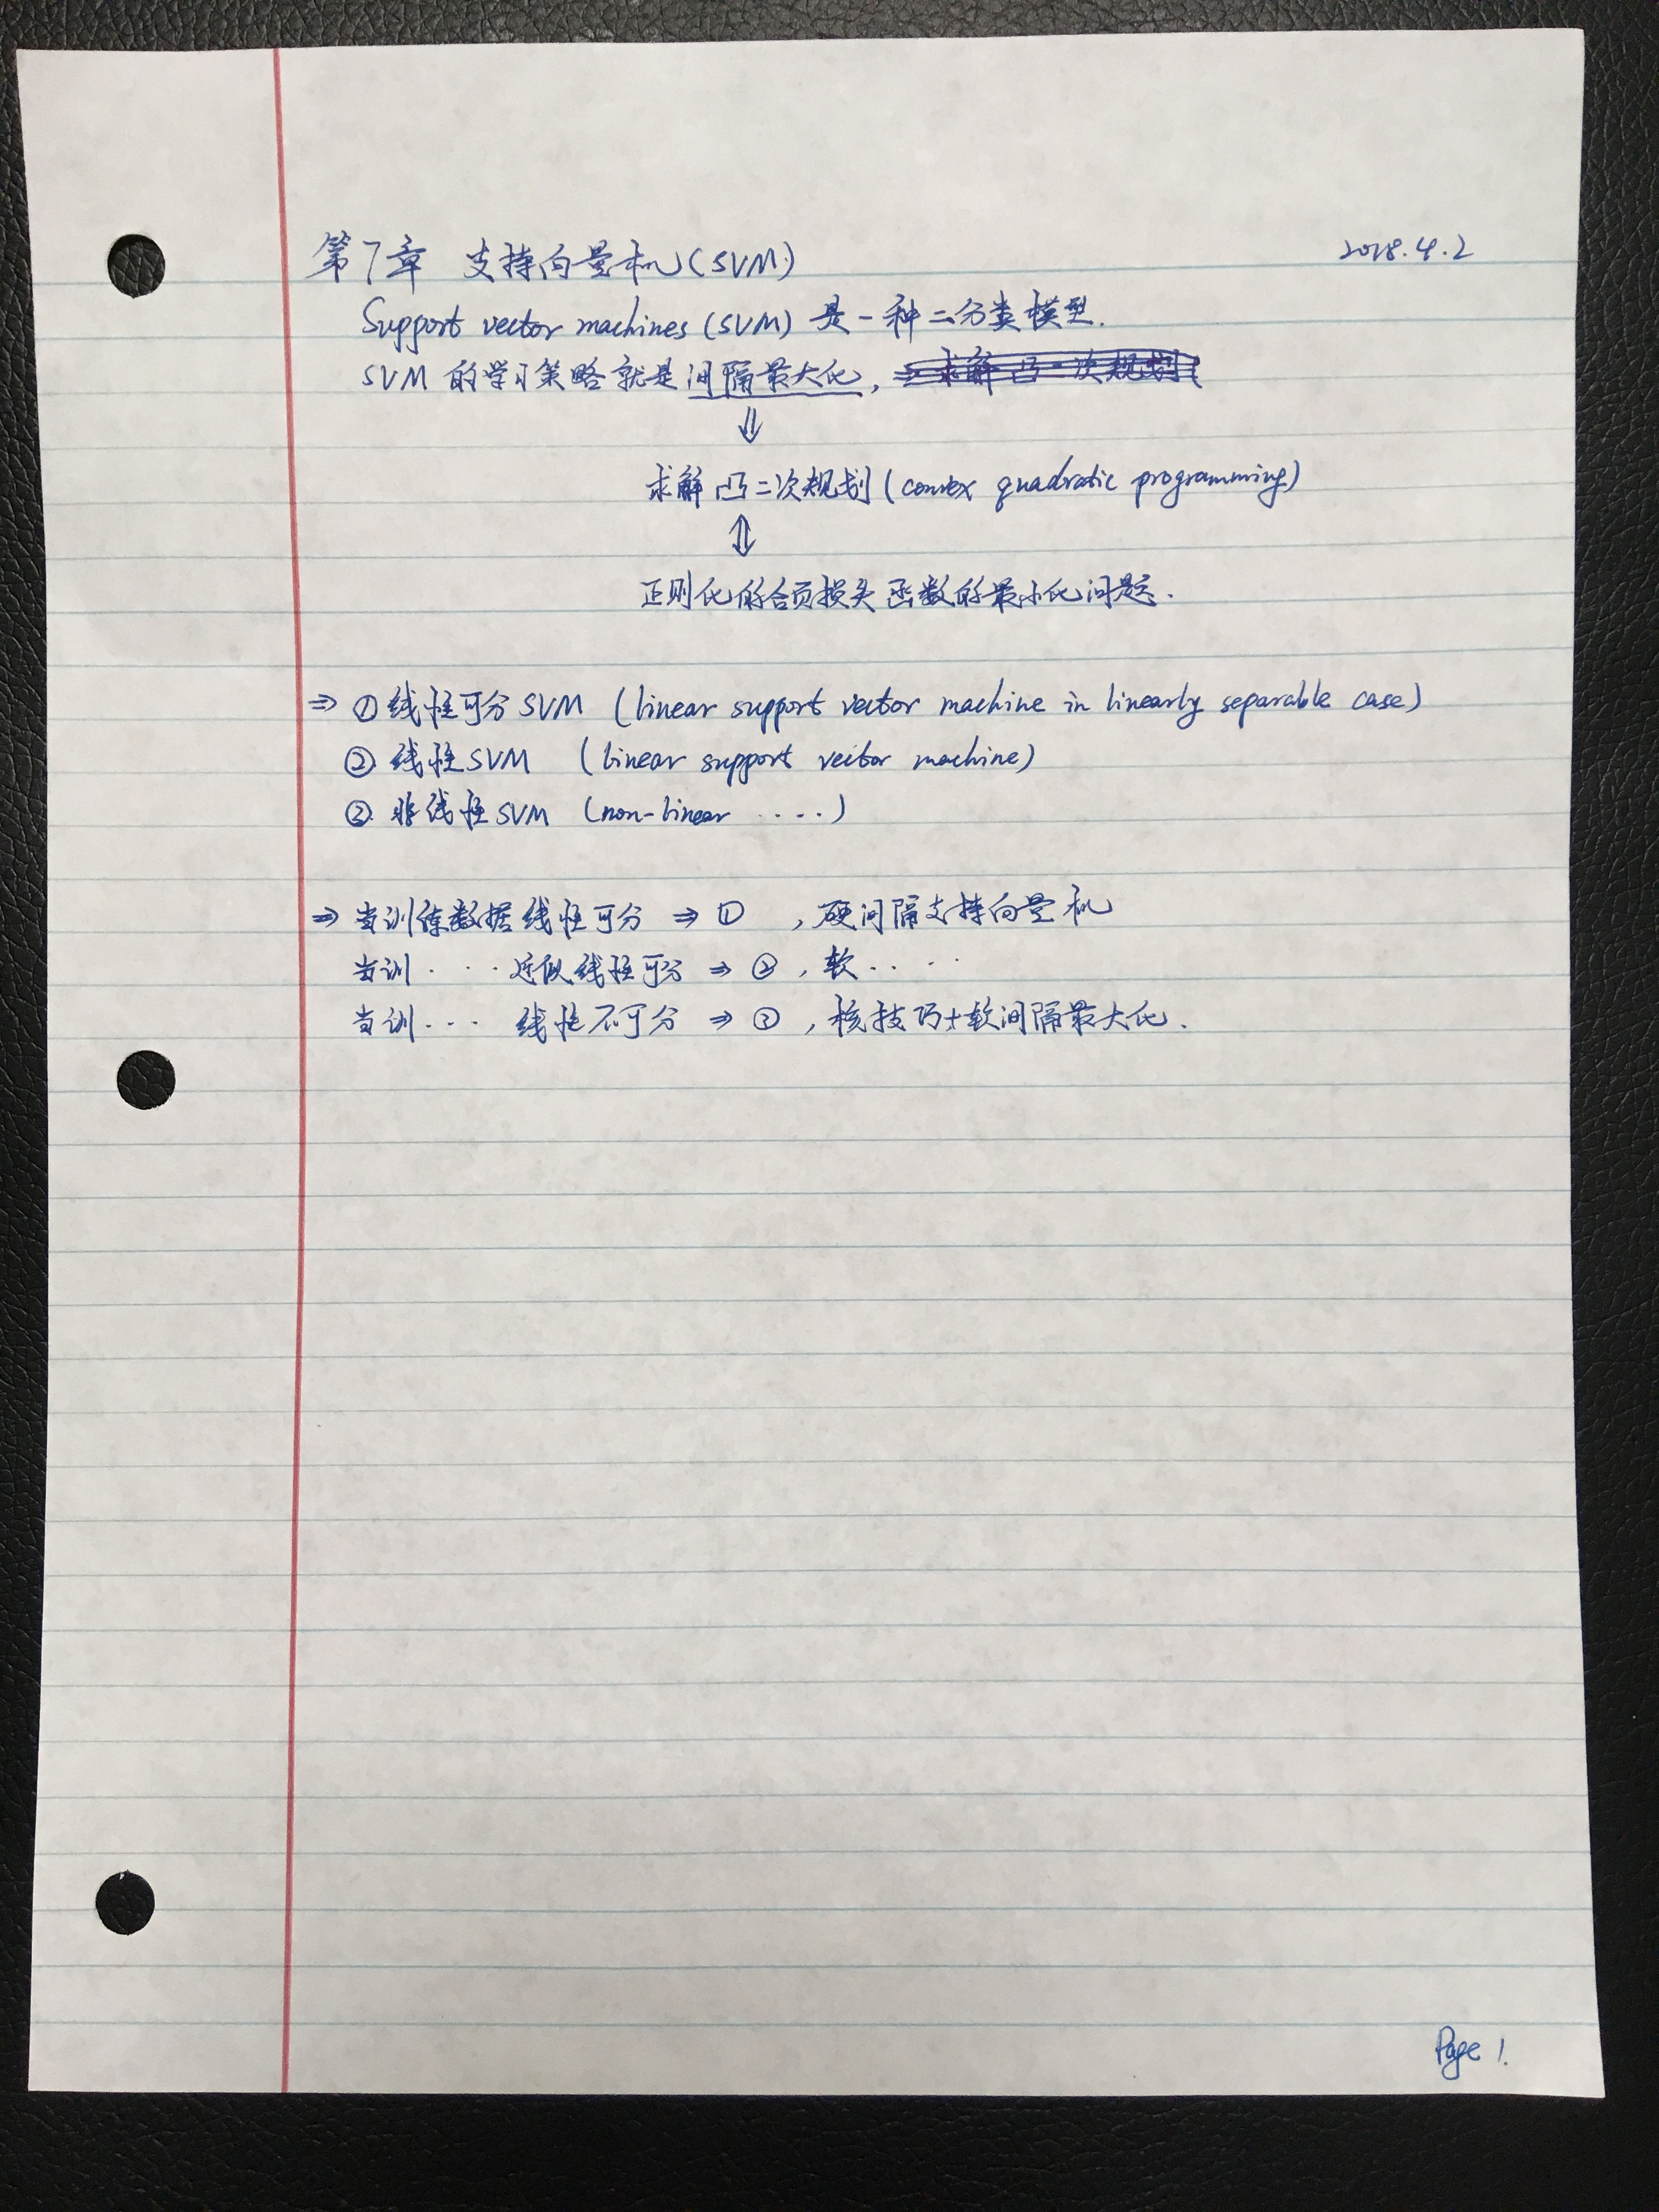 第7章 支持向量机(SVM) 2018.4.2
Support vector machines (SVM) 是一种二分类模型.
SVM 的学习策略就是间隔最大化, ⇒求解凸二次规划
⇓
求解凸二次规划(convex quadratic programming)
⇕
正则化的合页损失函数的最小化问题.
⇒ ①线性可分SVM (linear support vector machine in linearly separable case)
② 线性SVM (linear support vector machine)
③ 非线性SVM (non-linear ....)
⇒ 当训练数据线性可分 ⇒ ① ,硬间隔支持向量机
当训 · ··· 近似线性可分 ⇒ ②, 软·· ··
当训··· 线性不可分 ⇒ ③ ,核技巧+软间隔最大化.
Page 1.